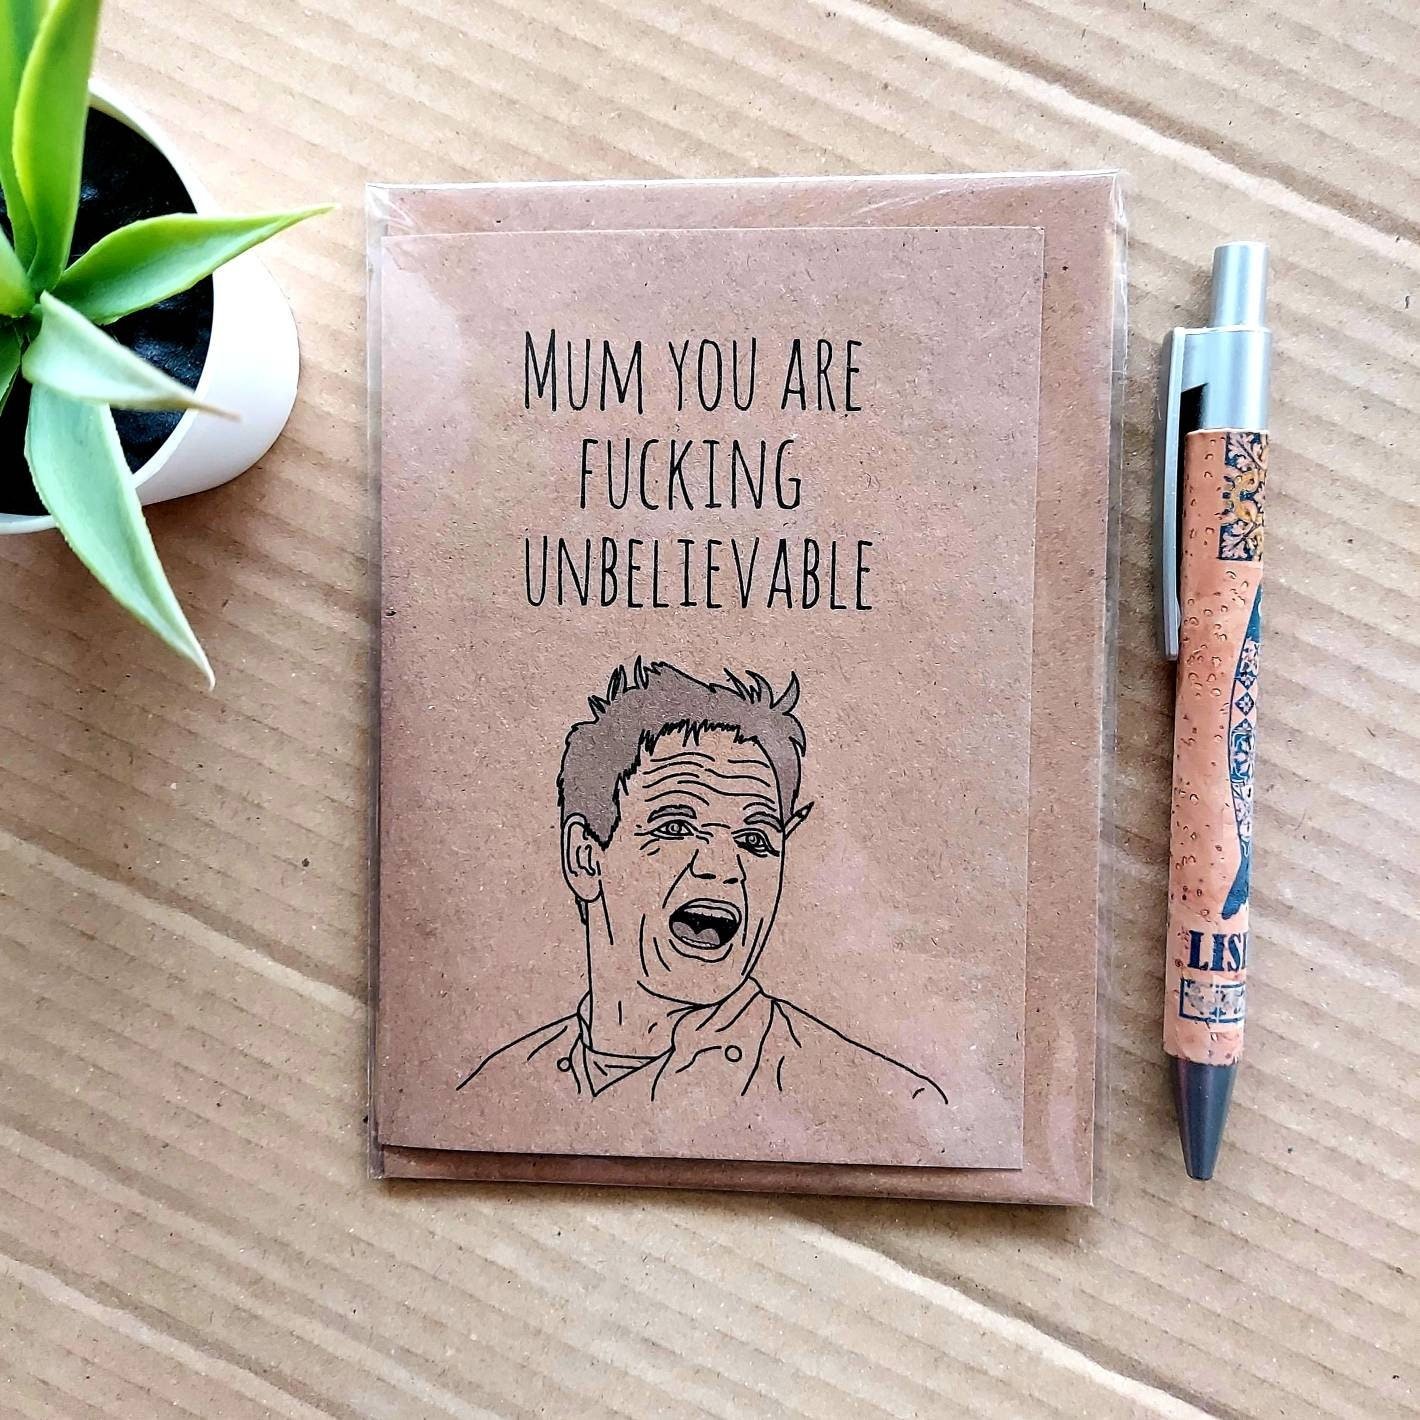 Mum you are
fucking
unbelievable